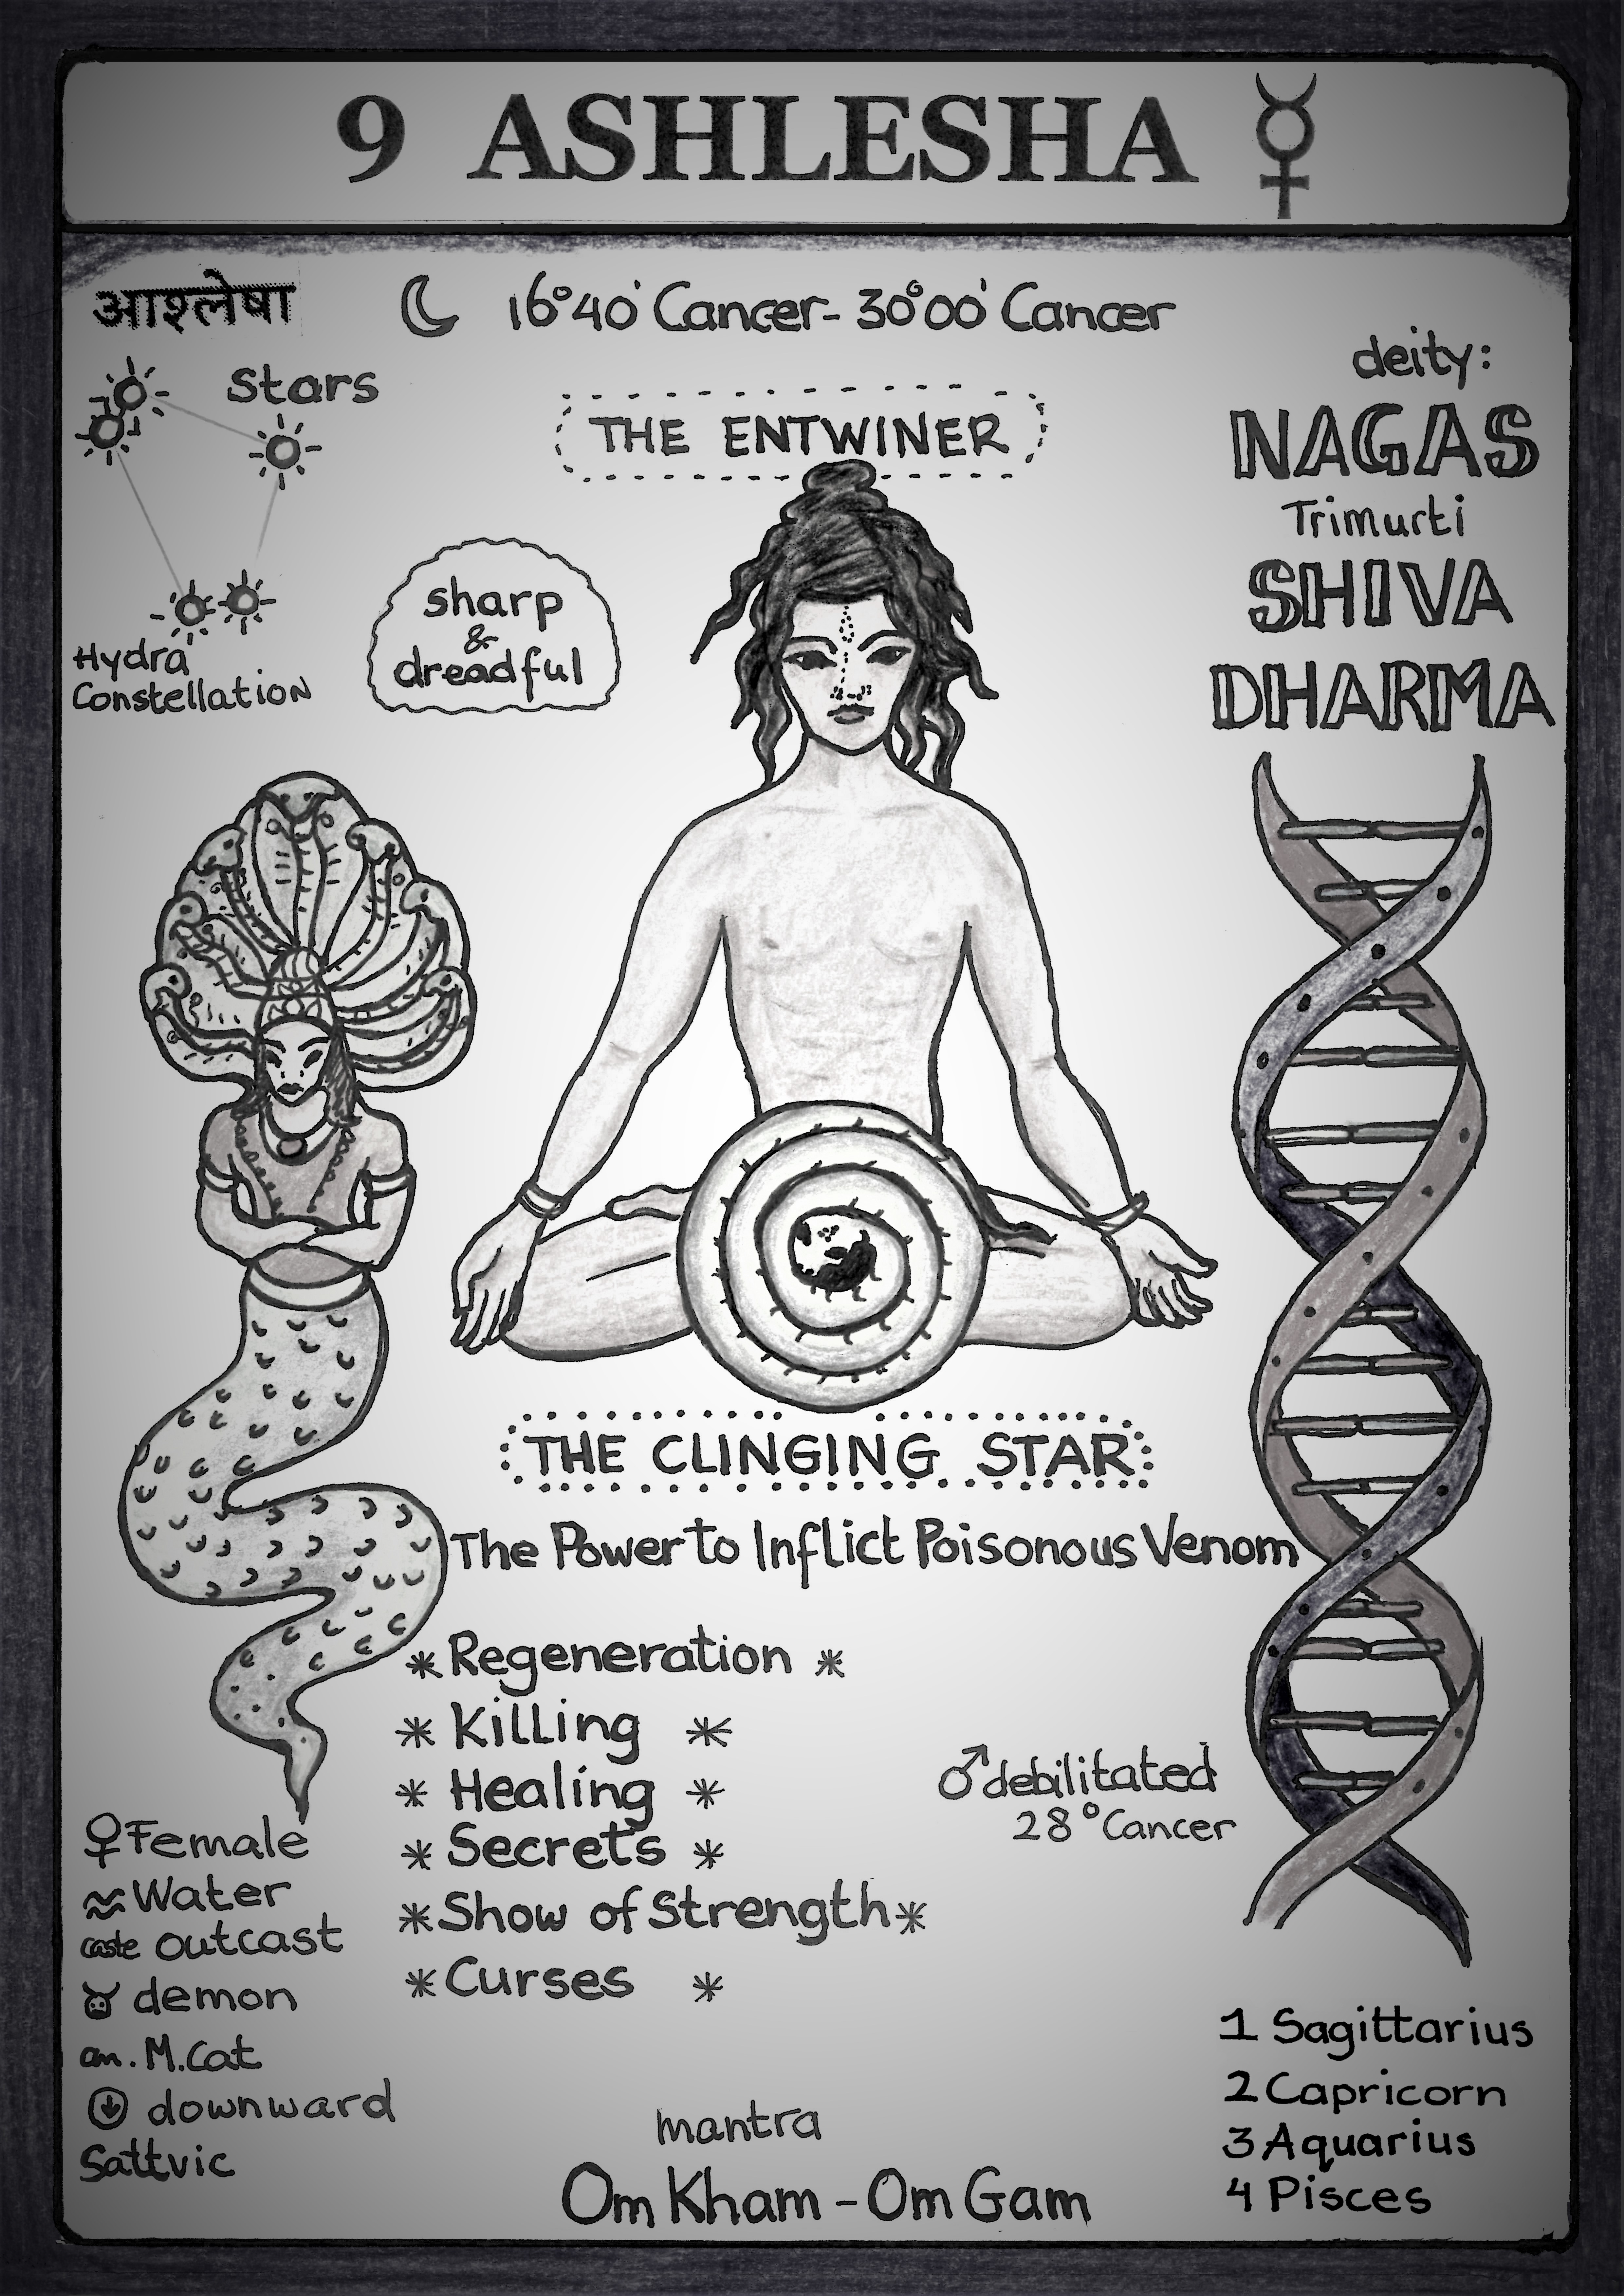 9 ASHLESHA ☿
आश्लेषा
☾ 16°40' Cancer - 30°00' Cancer
Stars
deity:
NAGAS
Trimurti
SHIVA
DHARMA
THE ENTWINER
sharp
&
dreadful
Hydra
Constellation
THE CLINGING STAR
The Power to Inflict Poisonous Venom
* Regeneration *
* Killing *
* Healing *
* Secrets *
* Show of Strength *
* Curses *
♂ debilitated
28° Cancer
♀ Female
Water
caste outcast
demon
an. M. Cat
downward
Sattvic
mantra
Om Kham - Om Gam
1 Sagittarius
2 Capricorn
3 Aquarius
4 Pisces